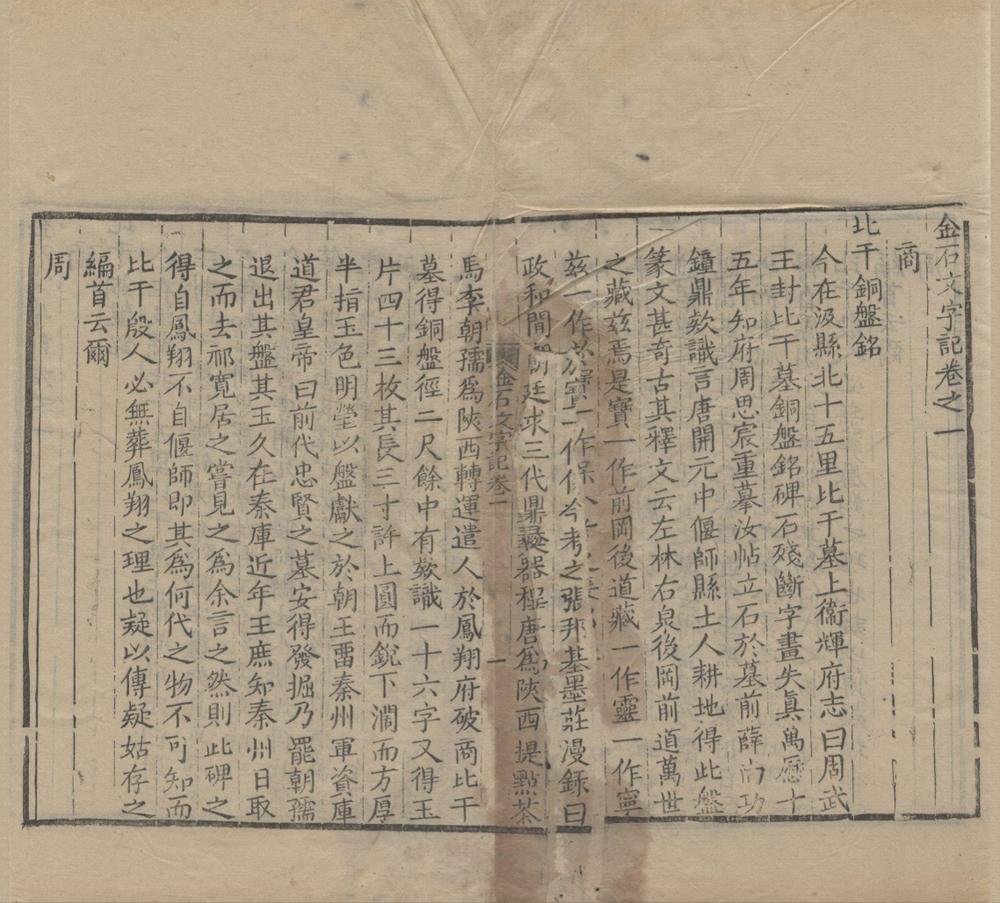 金石文字記卷之一
商
比干銅盤銘
今在汲縣北十五里比干墓上衞輝府志曰周武
王封比干墓銅盤銘碑石殘斷字畫失眞萬曆十
五年知府周思宸重摹汝帖立石於墓前薛尚功
鐘鼎欵識言唐開元中偃師縣土人耕地得此盤
篆文甚奇古其釋文云左林右泉後岡前道萬世
之藏茲焉是寶一作前岡後道藏一作靈一作寧
茲一作於寶一作保今考之張邦基墨莊漫錄曰
政和間朝廷求三代鼎彝器程唐爲陜西提點茶
金石文字記卷一
一
馬李朝孺爲陜西轉運遣人於鳳翔府破商比干
墓得銅盤徑二尺餘中有欵識一十六字又得玉
片四十三枚其長三寸許上圓而銳下濶而方厚
半指玉色明瑩以盤獻之於朝王雷秦州軍資庫
道君皇帝曰前代忠賢之墓安得發掘乃罷朝孺
退出其盤其玉久在秦庫近年王庶知秦州日取
之而去祁寛居之嘗見之爲余言之然則此碑之
得自鳳翔不自偃師即其爲何代之物不可知而
比干殷人必無葬鳳翔之理也疑以傳疑姑存之
編首云爾
周